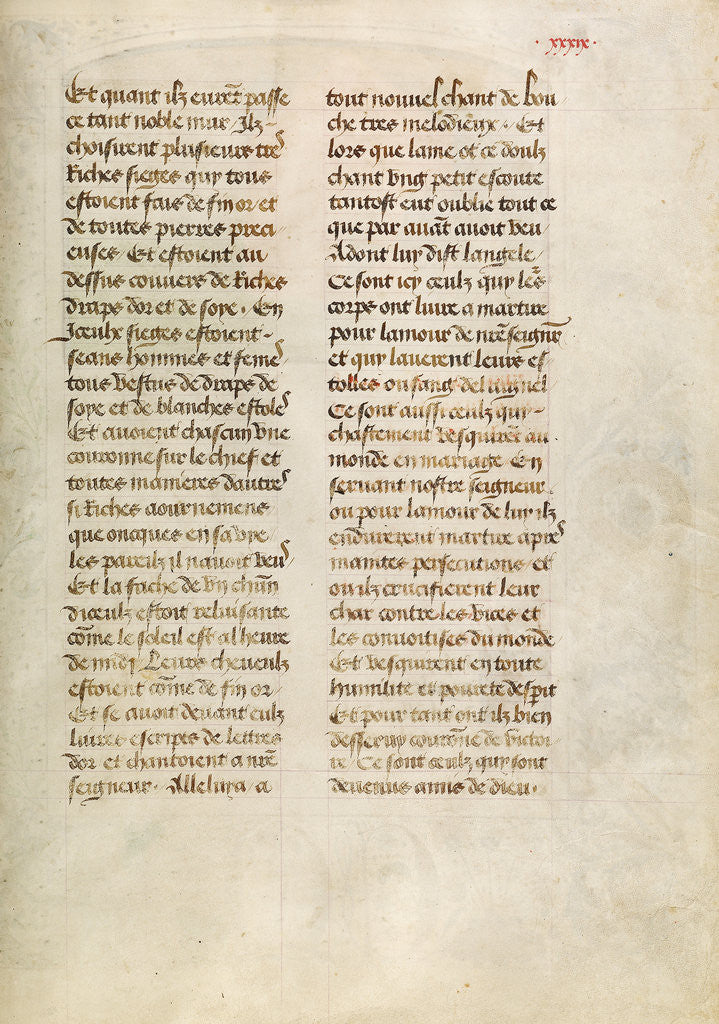 xxxix
Et quant ilz eurẽt passe
ce tant noble mur / Ilz
choisirent plusieurs tres
Riches sieges quy tous
estoient fais de fin or et
de toutes pierres preci
euses / Et estoient au
dessus couvers de Riches
draps dor et de soye . En
Jceulx sieges estoient
seans hommes et femẽs
tous vestus de draps de
soye et de blanches estoles
Et avoient chascun vne
couronne sur le chief et
toutes manieres dautres
si Riches aournemens
que oncques en sa vye
les pareilz il navoit veus
Et la fache de vn chũn
diceulz estoit reluisante
cõme le soleil est al heure
de midj / Leurs cheveulz
estoient cõme de fin or /
Et se avoit devant eulz
livres escrips de lettres
dor et chantoient a nrẽ
seigneur . Alleluya / a
tout nouvel chant de bou
che tres melodieux . Et
lors que lame ot ce doulz
chant vng petit escoute
tantost eut oublie tout ce
que par auãt avoit veu /
Adont luy dist langele /
Ce sont icy ceulz quy leᷤ
corps ont livre a martire
pour lamour de nrẽ seignr̃
et quy laverent leurs es
tolles ou sang de laignel
Ce sont aussi ceulz quy
chastement vesquirẽt au
monde en mariage En
servant nostre seigneur .
ou pour lamour de luy ilz
endurerent martire apres
maintes persecutions / et
ou ilz crucifierent leur
char contre les vices et
les convoitises du monde
Et vesquirent en toute
humilite et povrete desp̃it
Et pour tant ont ilz bien
desservy courõne de victoi
re / Ce sont ceulz quy sont
devenus amis de dieu .